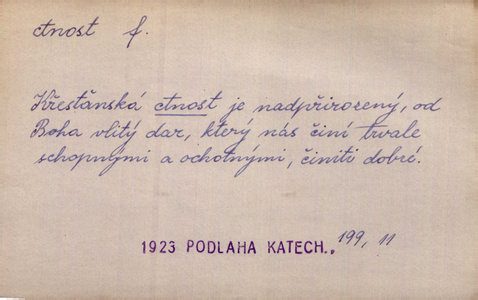 ctnost f.
Křesťanská ctnost je nadpřirozený, od
Boha vlitý dar, který nás činí trvale
schopnými a ochotnými, činiti dobré.
1923 PODLAHA KATECH., 199, 11